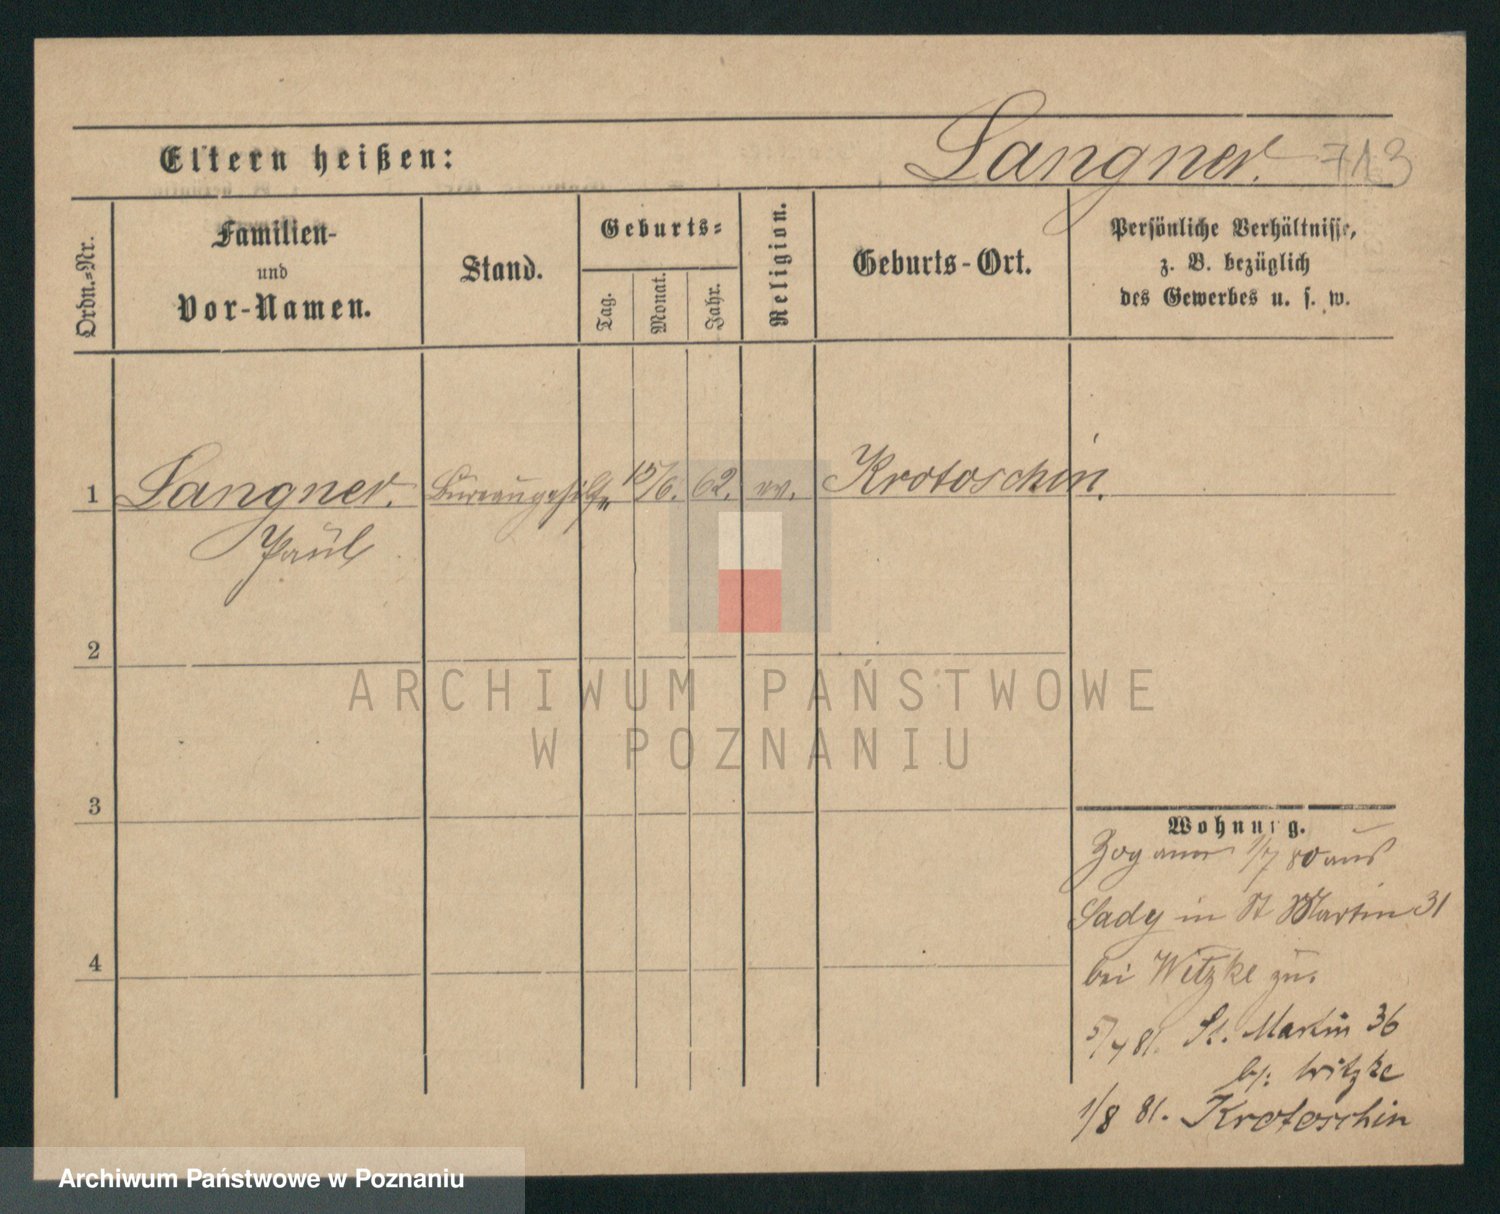 Langner. 713
Eltern heißen:
Ordn.-Nr.
Familien-
und
Vor-Namen.
Stand.
Geburts-
Tag.
Monat.
Jahr.
Religion.
Geburts-Ort.
Persönliche Verhältnisse,
z. B. bezüglich
des Gewerbes u. s. w.
1 Langner. Bureaugehilfe 15/6. 62. ev. Krotoschin.
Paul
2
3
4
Wohnung.
Zog am 1/7 80 aus
Sady in St Martin 31
bei Witzke zu.
5/4 81. St. Martin 36
bei Witzke
1/8 81. Krotoschin
ARCHIWUM PAŃSTWOWE
W POZNANIU
Archiwum Państwowe w Poznaniu